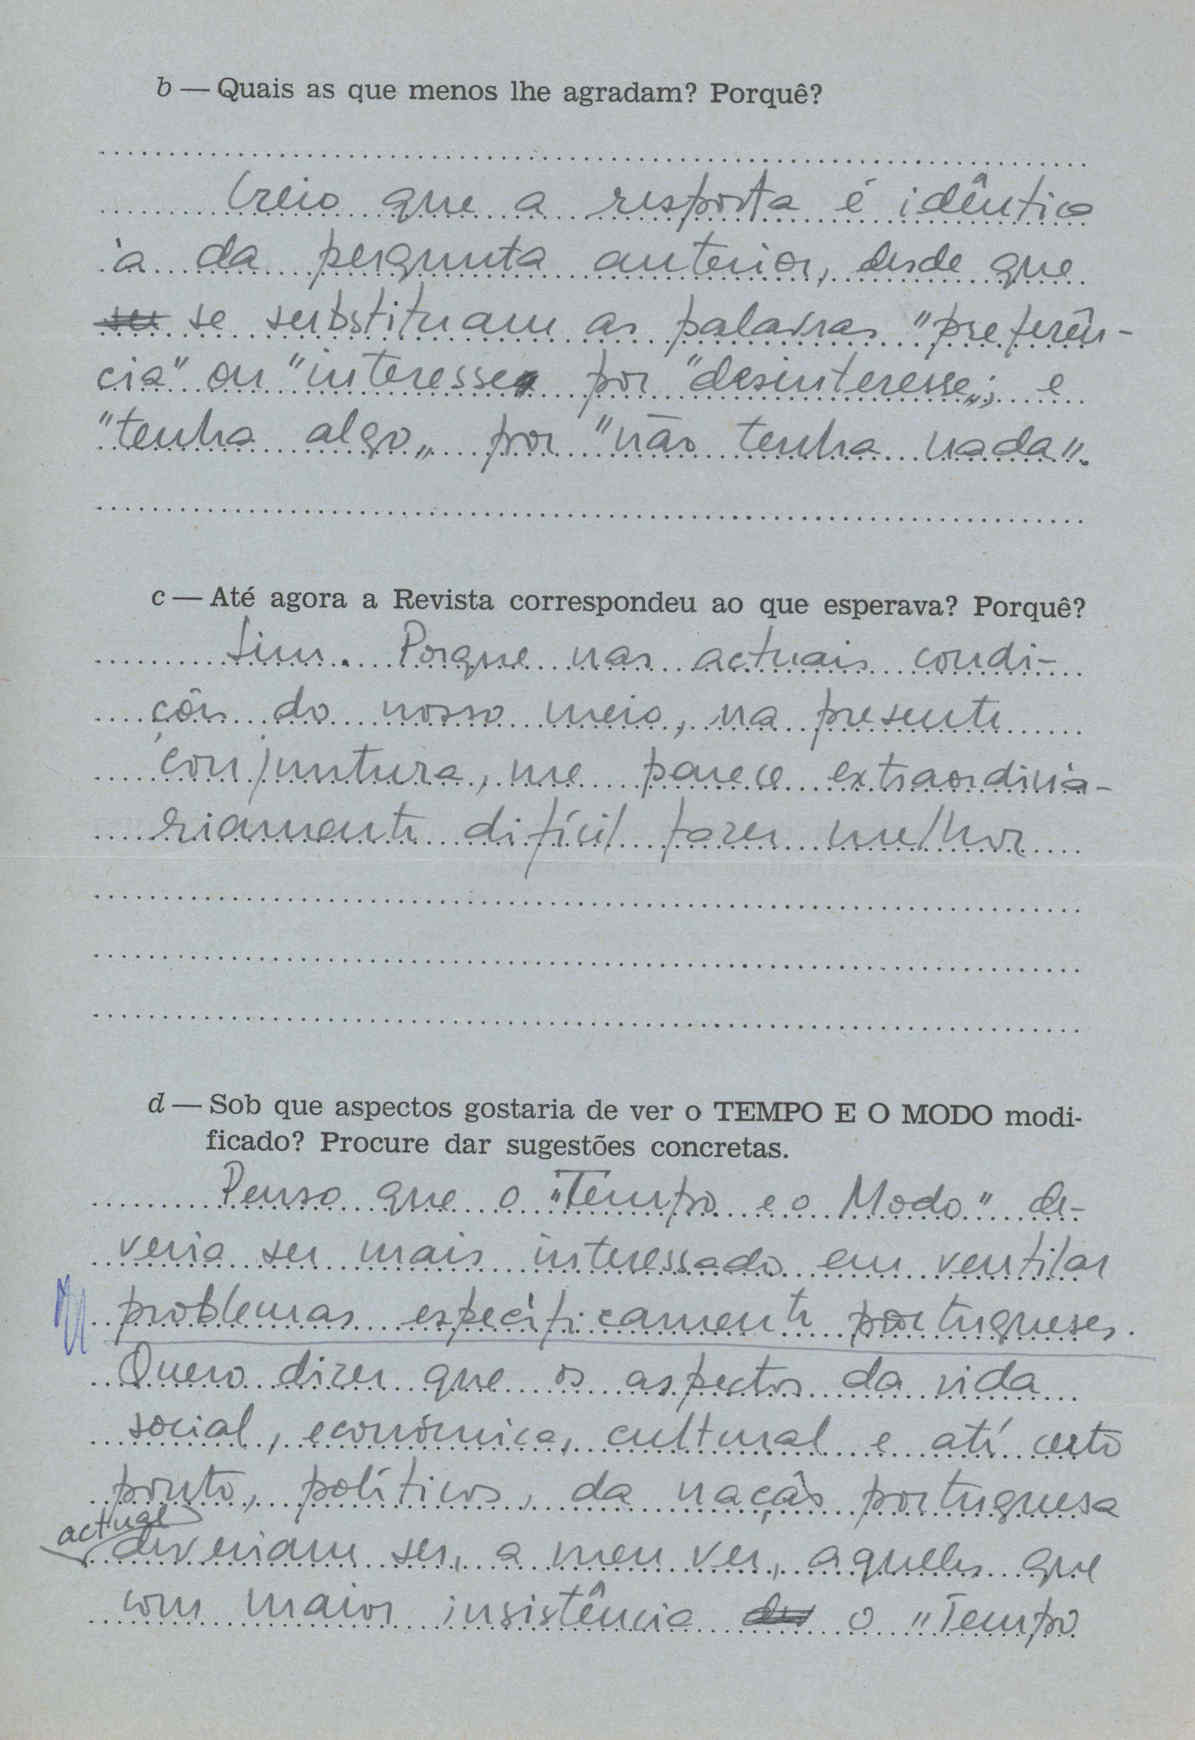 b — Quais as que menos lhe agradam? Porquê?
Creio que a resposta é idêntica
à da pergunta anterior, desde que
se substituam as palavras "preferên-
cia" ou "interesse" por "desinteresse"; e
"tenha algo" por "não tenha nada".
c — Até agora a Revista correspondeu ao que esperava? Porquê?
Sim. Porque nas actuais condi-
ções do nosso meio, na presente
conjuntura, me parece extraordiná-
riamente difícil fazer melhor
d — Sob que aspectos gostaria de ver o TEMPO E O MODO modi-
ficado? Procure dar sugestões concretas.
Penso que o "Tempo e o Modo" de-
veria ser mais interessado em ventilar
problemas especìficamente portugueses.
Quero dizer que os aspectos da vida
social, económica, cultural e até certo
ponto, políticos, da nação portuguesa
actual
deveriam ser, a meu ver, aqueles que
com maior insistência o "Tempo